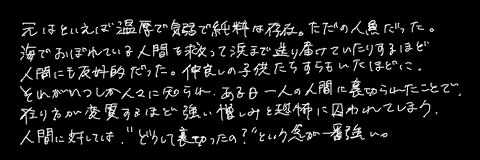 元はといえば温厚で気弱で純粋な存在。ただの人魚だった。
海でおぼれている人間を救って浜まで送り届けていたりするほど
人間にも友好的だった。仲良しの子供たちすらもいたほどに。
それがいつしか人々に知られ、ある日一人の人間に裏切られたことで、
在り方が変質するほど強い憎しみと恐怖に囚われてしまう。
人間に対しては、"どうして裏切ったの?"という念が一番強い。